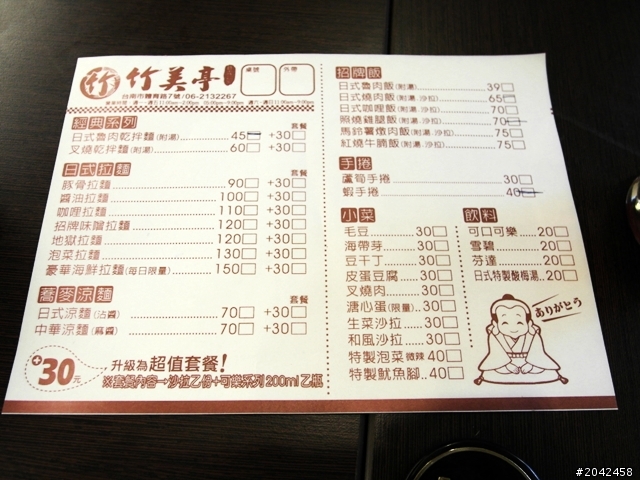 竹 竹美亭
桌號
外帶
台南市體育路7號/06-2132267
經典系列 套餐
日式魯肉乾拌麵(附湯) 45 +30
叉燒乾拌麵(附湯) 60 +30
日式拉麵 套餐
豚骨拉麵 90 +30
醬油拉麵 100 +30
咖哩拉麵 110 +30
招牌味噌拉麵 120 +30
地獄拉麵 120 +30
泡菜拉麵 130 +30
豪華海鮮拉麵(每日限量) 150 +30
蕎麥涼麵 套餐
日式涼麵(沾醬) 70 +30
中華涼麵(麻醬) 70 +30
+30元 升級為 超值套餐!
※套餐內容→沙拉乙份+可樂系列200ml乙瓶
招牌飯
日式魯肉飯(附湯) 39
日式燒肉飯(附湯.沙拉) 65
日式咖哩飯(附湯) 70
照燒雞腿飯(附湯.沙拉) 70
馬鈴薯燉肉飯(附湯.沙拉) 75
紅燒牛腩飯(附湯.沙拉) 75
手捲
蘆筍手捲 30
蝦手捲 40
小菜
毛豆 30
海帶芽 30
豆干丁 30
皮蛋豆腐 30
叉燒肉 30
溏心蛋(限量) 30
生菜沙拉 30
和風沙拉 30
特製泡菜 微辣 40
特製魷魚腳 40
飲料
可口可樂 20
雪碧 20
芬達 20
日式特製酸梅湯 20
ありがとう
#2042458